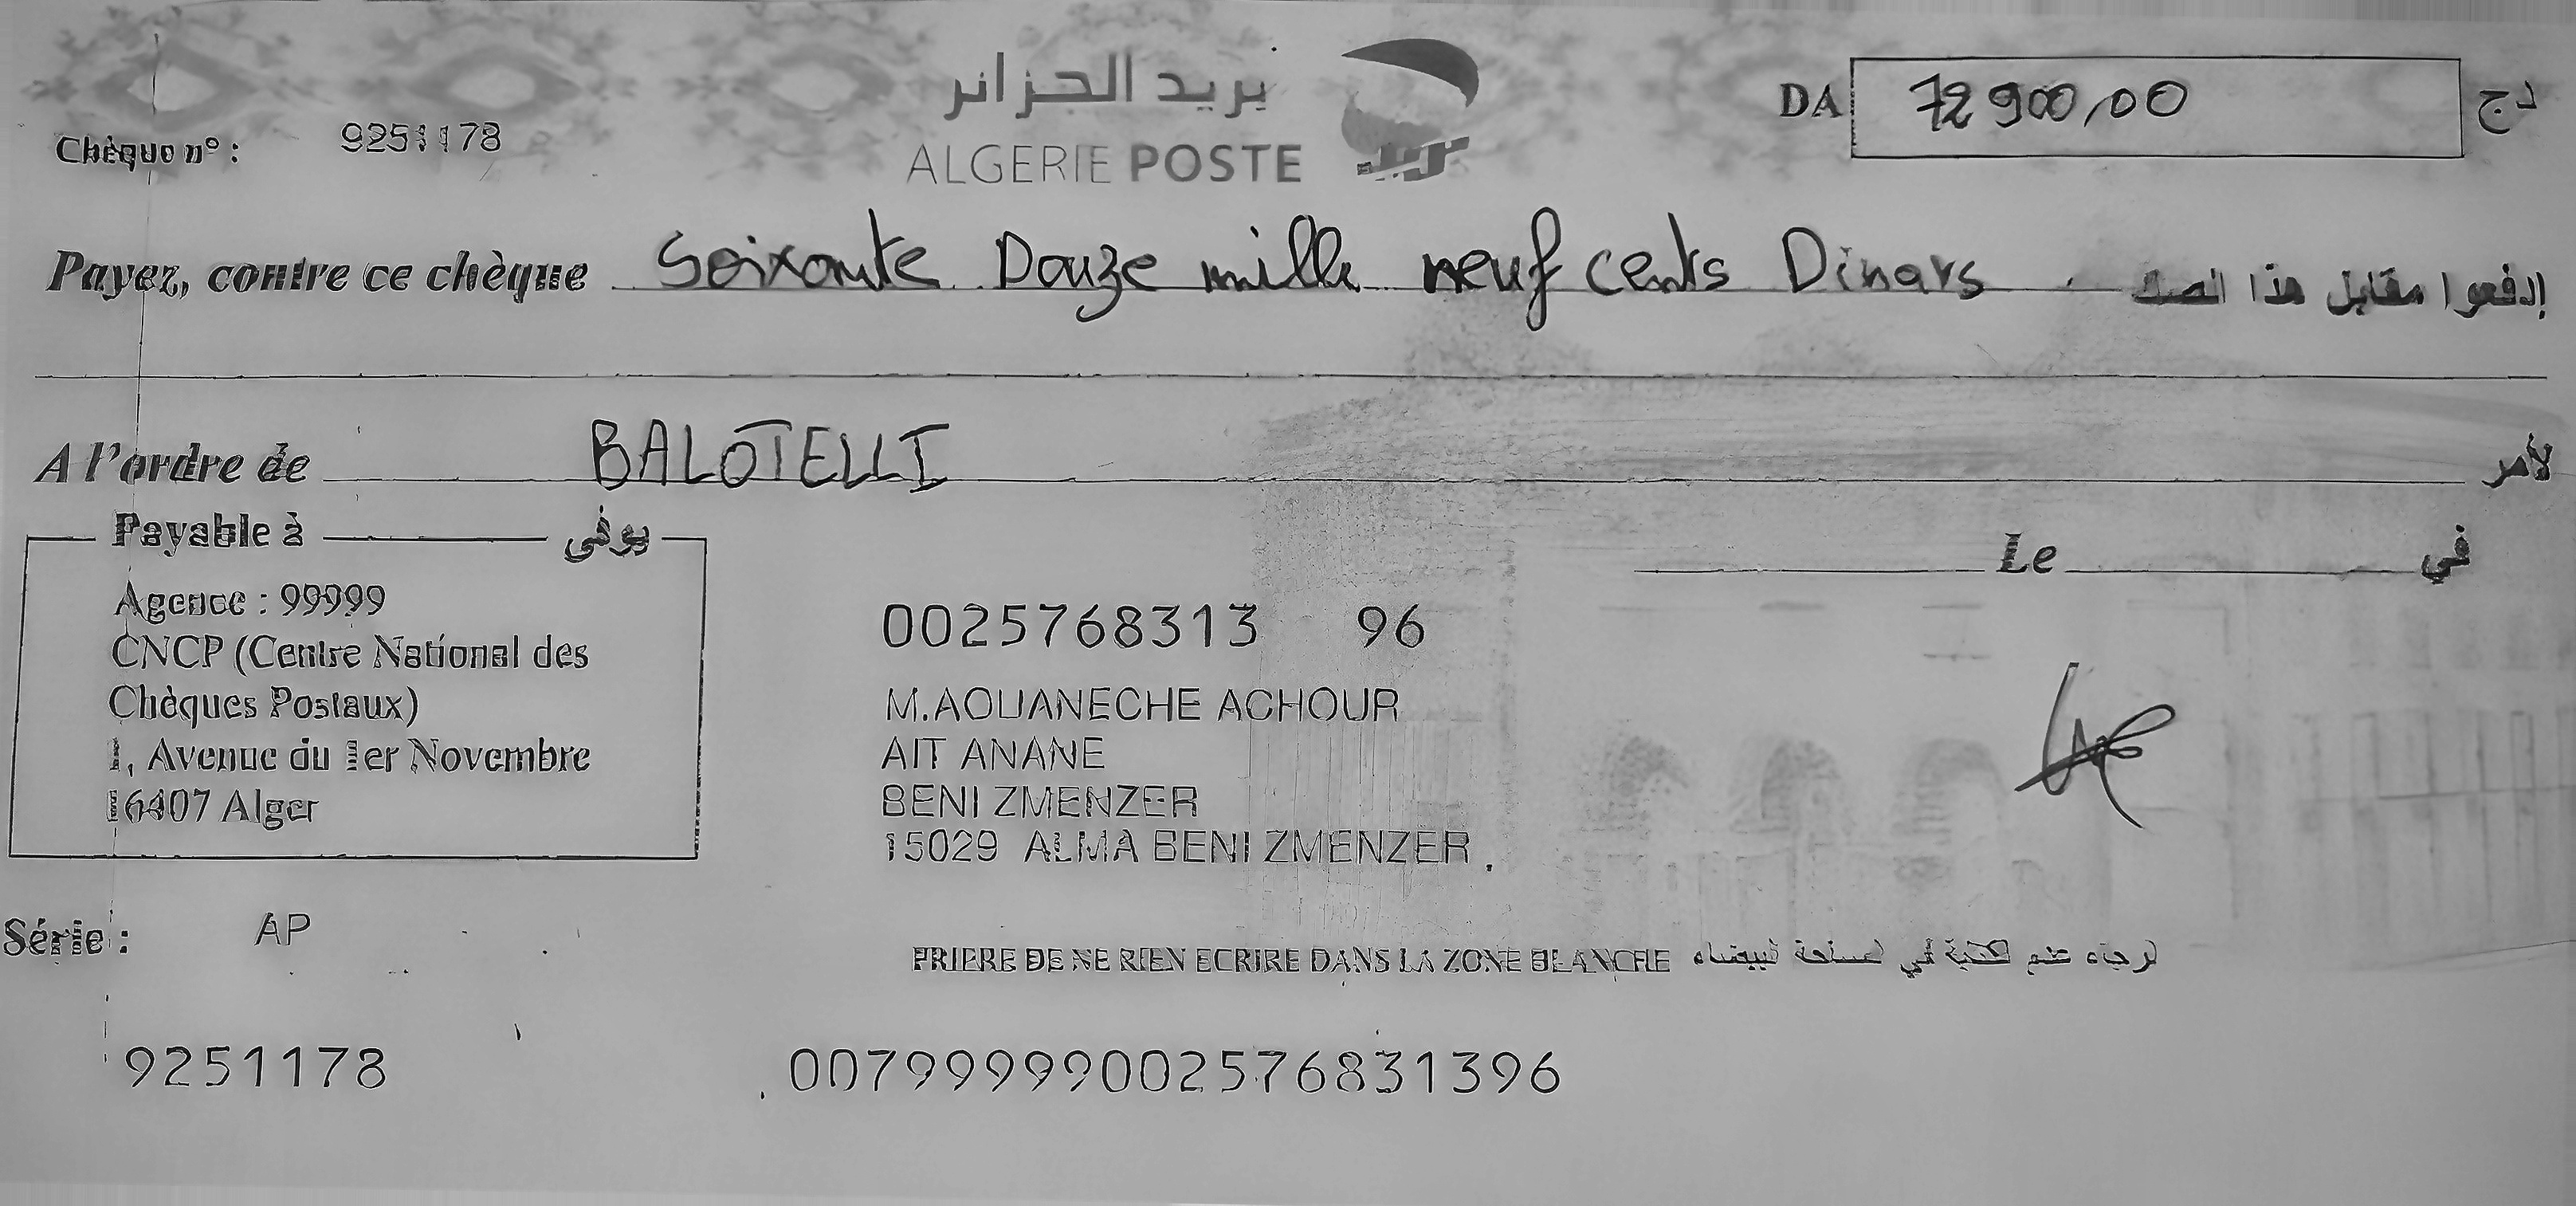 بريد الجزائر
ALGERIE POSTE
DA 72 900,00 دج
Chèque n° : 9251178
Payez, contre ce chèque Soixante Douze mille neuf cents Dinars إدفعوا مقابل هذا الصك
A l'ordre de BALOTELLI لأمر
Payable à يوفى
Le في
Agence : 99999
CNCP (Centre National des
Chèques Postaux)
1, Avenue du 1er Novembre
16407 Alger
0025768313 96
M.AOUANECHE ACHOUR
AIT ANANE
BENI ZMENZER
15029 ALMA BENI ZMENZER
Série : AP
PRIERE DE NE RIEN ECRIRE DANS LA ZONE BLANCHE
9251178 00799999002576831396